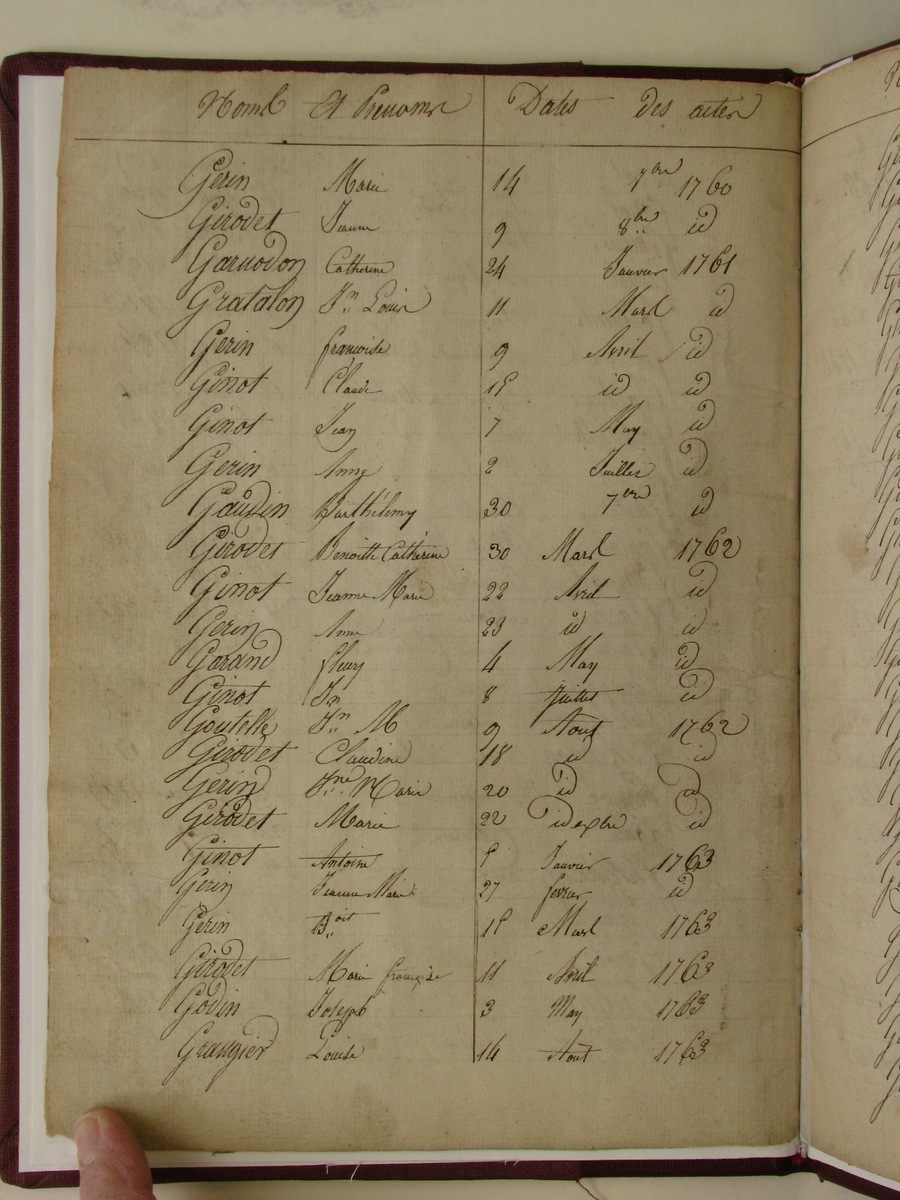 Noms Et Prenoms Dates des actes
Gerin Marie 14 7bre 1760
Girodet Jeanne 9 8bre id
Garnodon Catherine 24 Janvier 1761
Gratalon Jn Louis 11 Mars id
Gerin françoise 9 Avril id
Ginot Claude 15 id id
Ginot Jean 7 May id
Gerin Anne 2 Juillet id
Gaudin Barthélemy 30 7bre id
Girodet Benoitte Catherine 30 Mars 1762
Ginot Jeanne Marie 22 Avril id
Gerin Anne 23 id id
Garand fleury 4 May id
Ginot Jn 8 Juillet id
Goutelle Jn M 9 Aout 1762
Girodet Claudine 18 id id
Gerin Jne Marie 20 id id
Girodet Marie 22 id
Ginot Antoine 5 Janvier 1763
Gerin Jeanne Marie 27 fevrier id
Gerin Boit 15 Mars 1763
Girodet Marie françoise 11 Avril 1763
Godin Joseph 3 May 1763
Grangier Louise 14 Aout 1763